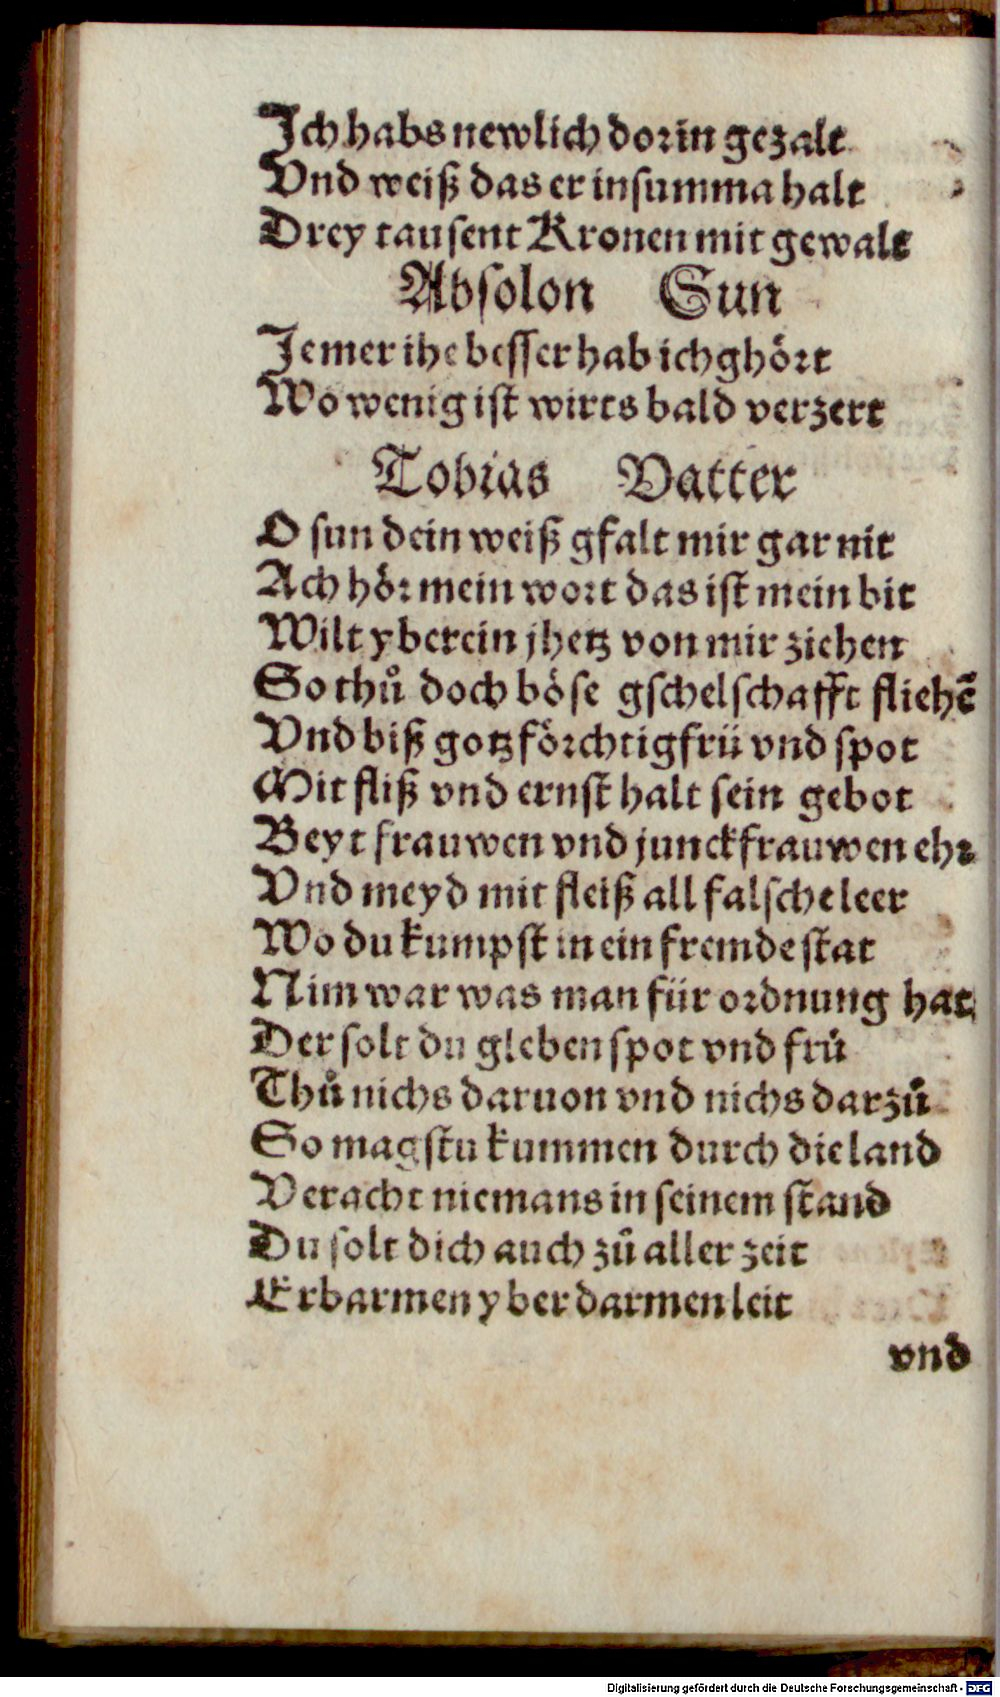 Ich habs newlich dorin gezalt
Vnd weiß das er in summa halt
Drey tausent Kronen mit gewalt
Absolon Sun
Je mer ihe besser hab ich ghört
Wo wenig ist wirts bald verzert
Tobias Vatter
O sun dein weiß gfalt mir gar nit
Ach hör mein wort das ist mein bit
Wilt yberein jhetz von mir ziehen
So thů doch böse gschelschafft fliehẽ
Vnd biß gotzförchtig frü vnd spot
Mit fliß vnd ernst halt sein gebot
Beyt frauwen vnd junckfrauwen ehr
Vnd meyd mit fleiß all falsche leer
Wo du kumpst in ein fremde stat
Nim war was man für ordnung hat
Der solt du gleben spot vnd frů
Thů nichs daruon vnd nichs darzů
So magstu kummen durch die land
Veracht niemans in seinem stand
Du solt dich auch zů aller zeit
Erbarmen yber darmen leit
vnd
Digitalisierung gefördert durch die Deutsche Forschungsgemeinschaft - DFG